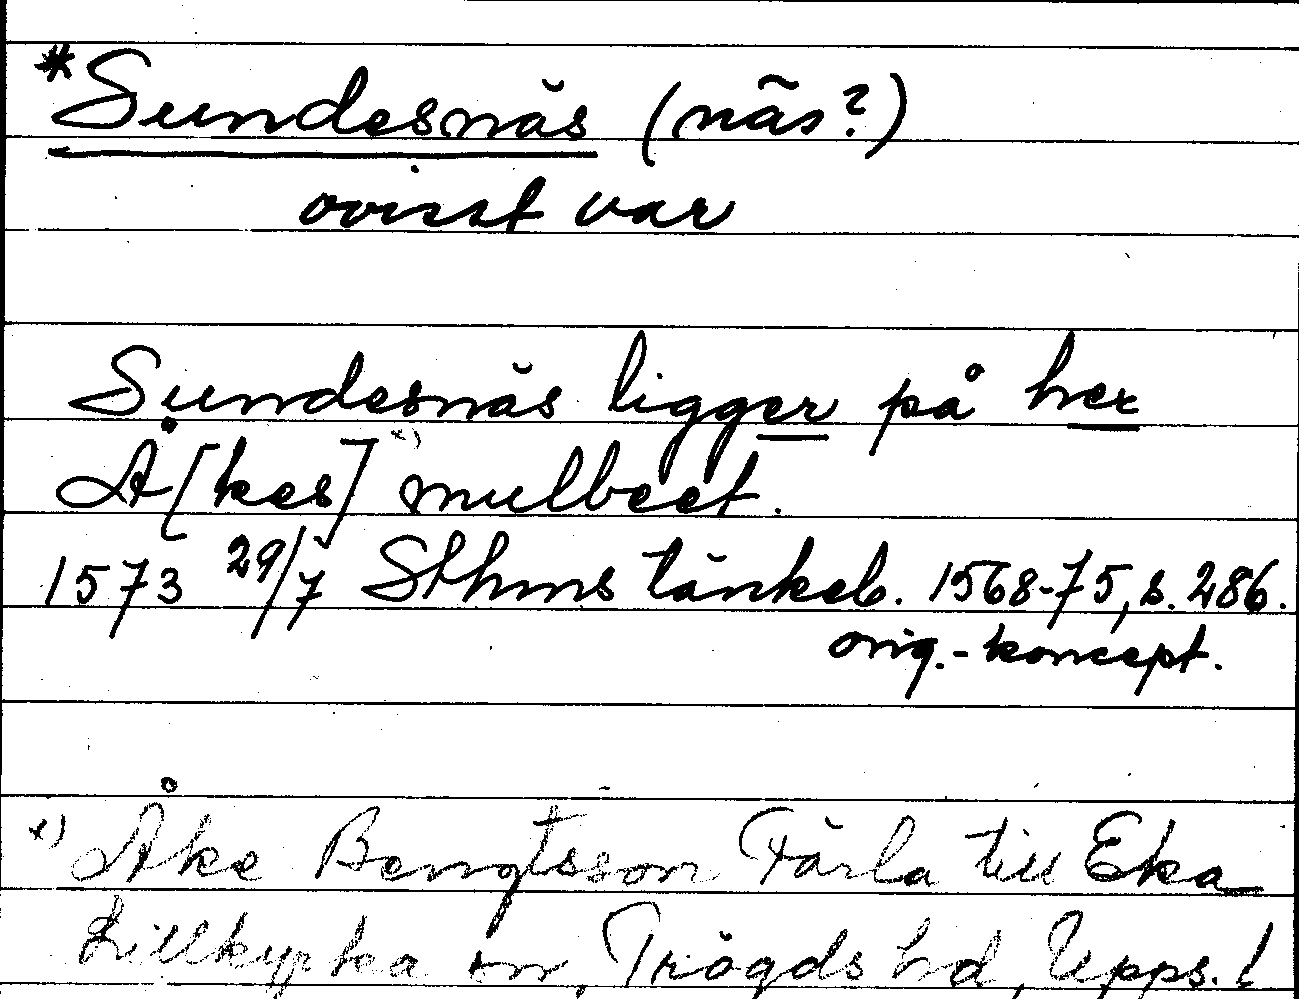 *Sundesnäs (näs?)
ovisst var
Sundesnäs ligger på her
Å[kes] x) mulbeet.
1573 29/7 Sthms tänkeb. 1568-75, s. 286.
orig.-koncept.
x) Åke Bengtsson Färla till Eka
Lillkyrka sn, Trögds hd, Upps. l